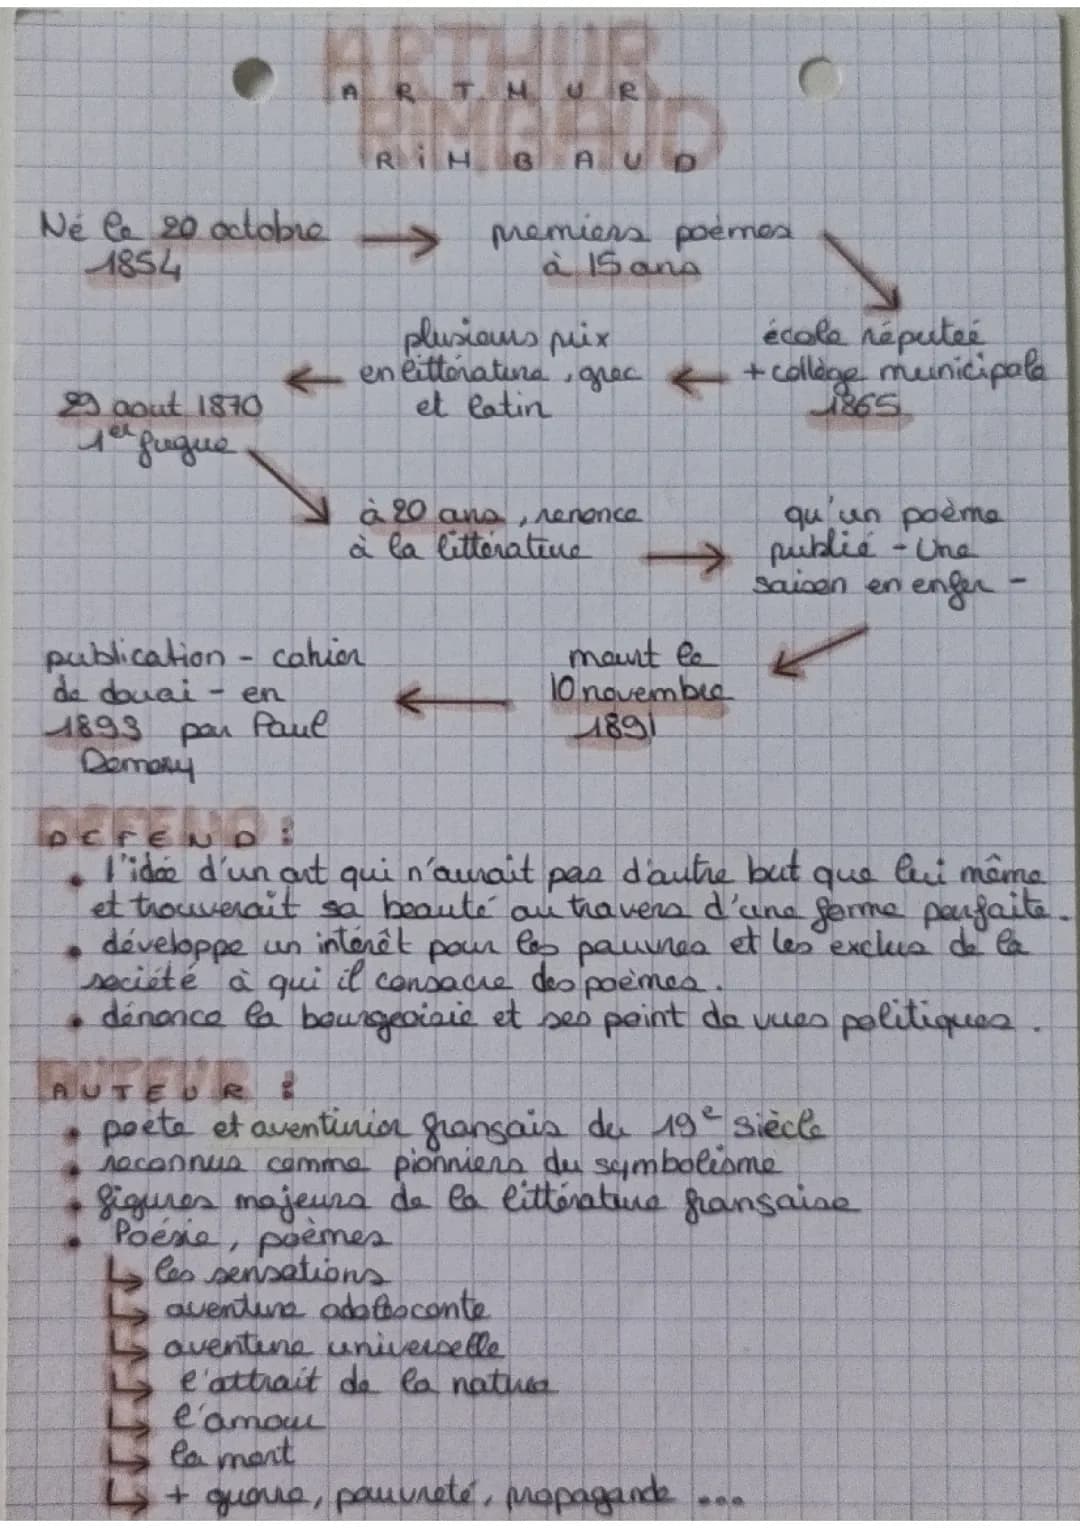 ARTHUR
RIMBAUD
Né le 20 octobre
1854
premiers poèmes
à 15 ans
école réputée
+ collège municipale
1865
plusieurs prix
en littérature, grec
et latin
29 aout 1870
1er fugue
à 20 ans, renonce
à la littérature
qu'un poème
publié - Une
saison en enfer -
meurt le
10 novembre
1891
publication - cahier
de douai - en
1893 par Paul
Demeny
DEFEND :
• l'idée d'un art qui n'aurait pas d'autre but que lui même
et trouverait sa beauté au travers d'une forme parfaite.
• développe un intérêt pour les pauvres et les exclus de la
société à qui il consacre des poèmes.
• dénonce la bourgeoisie et ses point de vues politiques.
AUTEUR :
• poète et aventurier français du 19e siècle
• reconnus comme pionniers du symbolisme
• figures majeurs de la littérature française
• Poésie, poèmes
↳ les sensations
↳ aventure adolescente
↳ aventure universelle
↳ l'attrait de la nature
↳ l'amour
↳ la mort
↳ + guerre, pauvreté, propagande ...